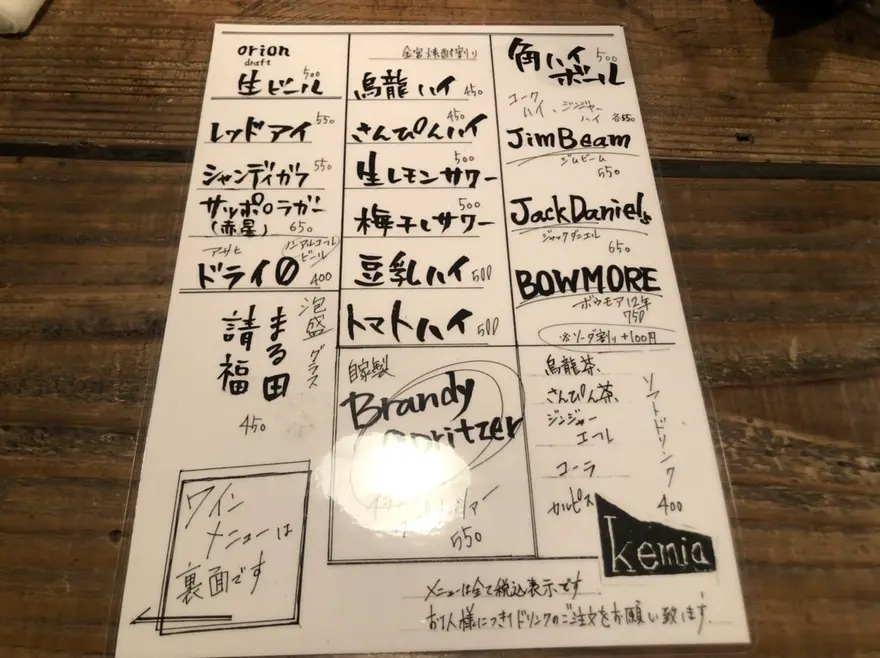 orion
draft
生ビール 500
レッドアイ 550
シャンディガフ 550
サッポロラガー
(赤星) 650
アサヒ
ノンアルコール
ビール
ドライ0 400
泡盛 グラス
まる田
請福
450
ワイン
メニューは
裏面です
金宮焼酎割り
烏龍ハイ 450
さんぴんハイ 450
生レモンサワー 500
梅干しサワー 500
豆乳ハイ 500
トマトハイ 500
自家製
Brandy
Spritzer
550
角ハイ
ボール 500
コーク
ハイ、ジンジャー
ハイ 各550
JimBeam
ジムビーム
550
JackDaniel's
ジャックダニエル
650
BOWMORE
ボウモア12年
750
※ソーダ割り+100円
烏龍茶
さんぴん茶
ジンジャー
エール
コーラ
カルピス
ソフトドリンク
400
kemia
メニューは全て税込表示です
お1人様につき1ドリンクのご注文をお願い致します。